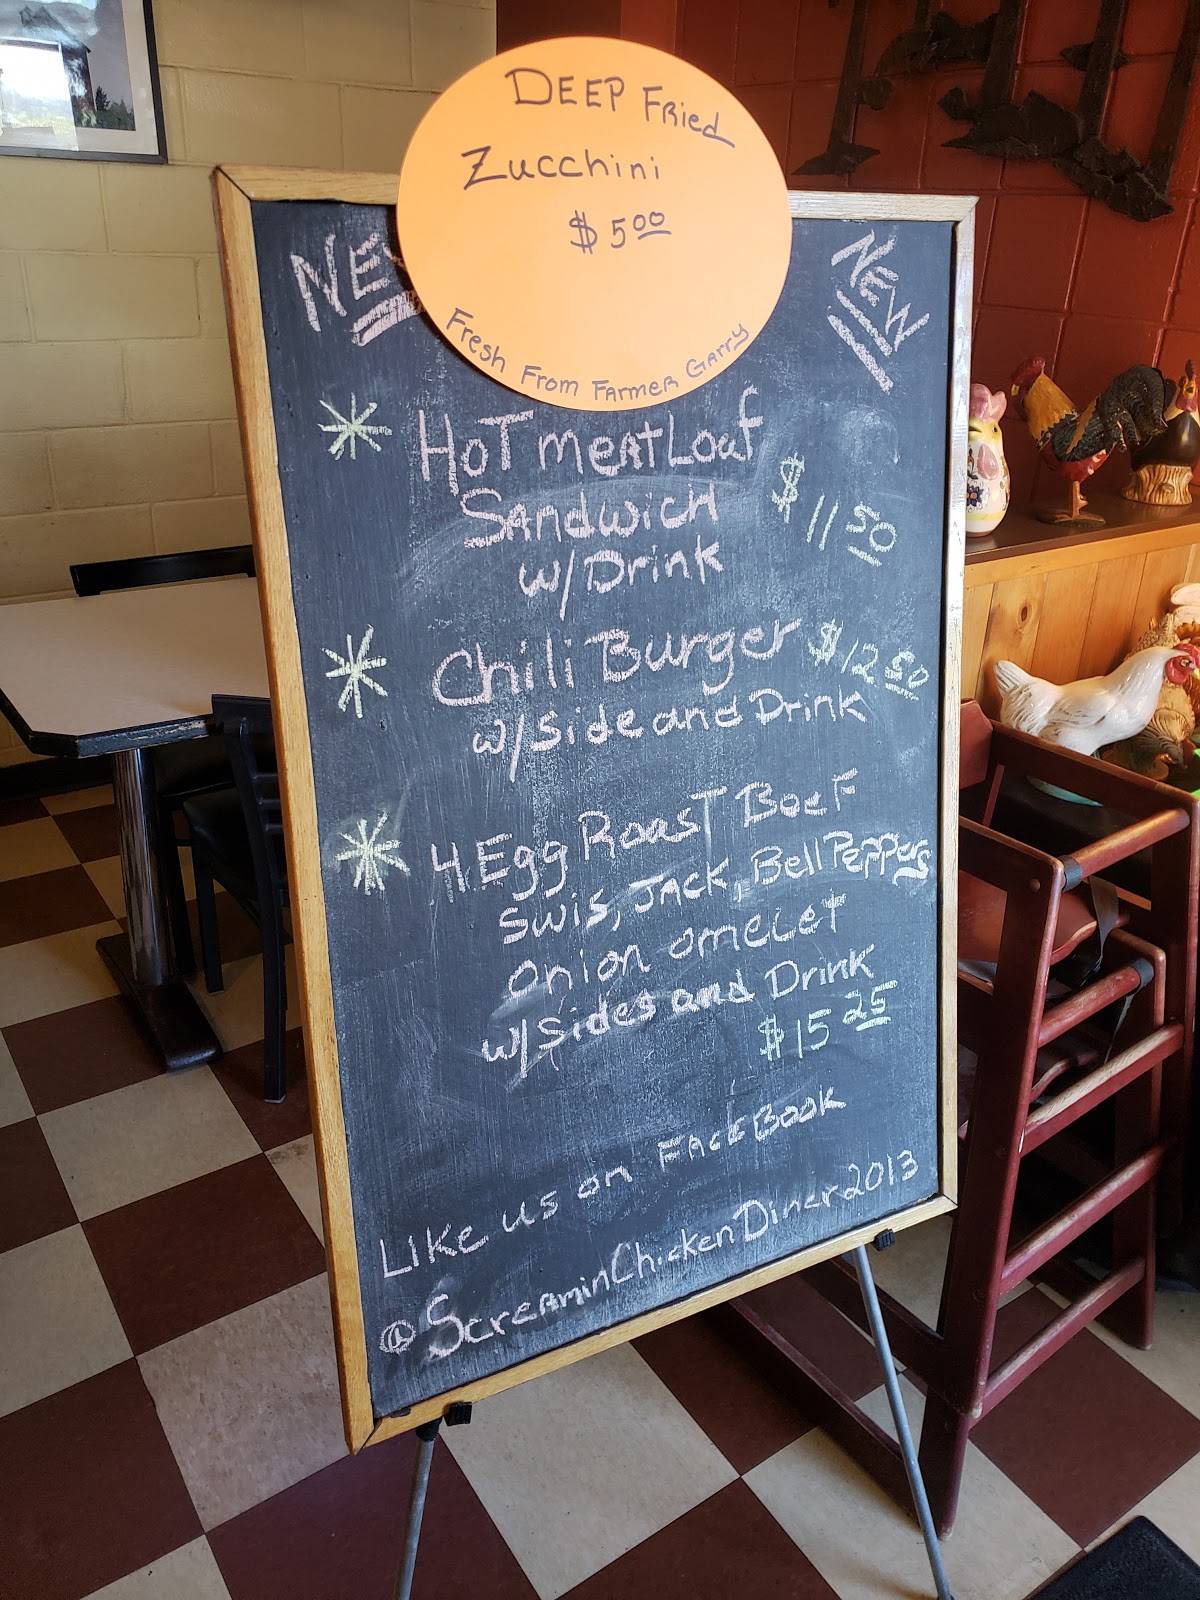 DEEP Fried
Zucchini
$ 5.00
Fresh From Farmer Garry
NEW
Hot meatLoaf
Sandwich
w/Drink
$ 11 50
Chili Burger $12.50
w/side and Drink
4 Egg Roast Beef
Swis, Jack, Bell Peppers
onion omelet
w/sides and Drink
$15 25
Like us on FACEBook
@ScreaminChickenDiner2013